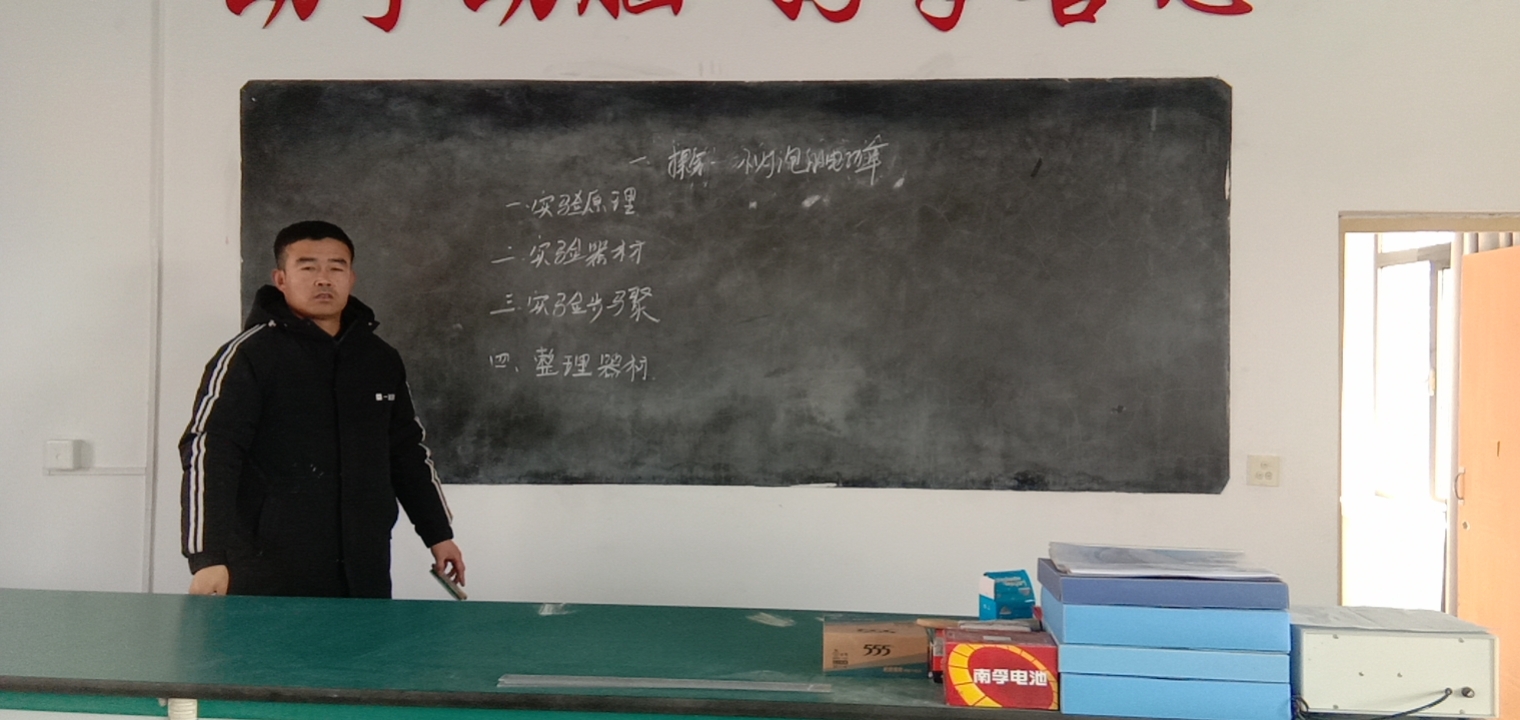 动手动脑 好学善思
一. 探究: 小灯泡的电功率
一.实验原理
二.实验器材
三.实验步骤
四、整理器材.
555
南孚电池